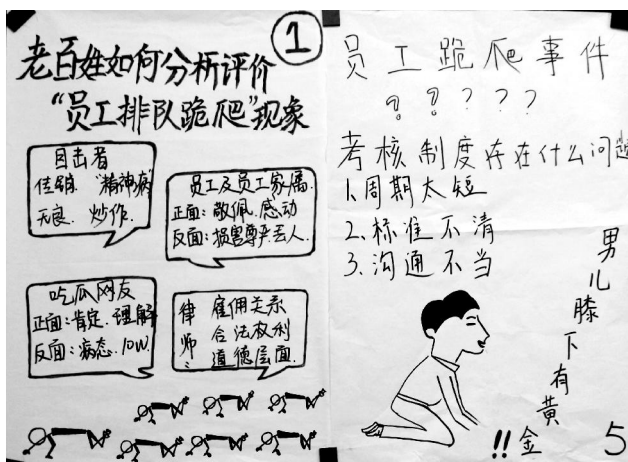 ①
老百姓如何分析评价
“员工排队跪爬”现象
目击者
传销 “精神病”
无良. 炒作.
员工及员工家属.
正面: 敬佩. 感动
反面: 损害尊严丢人.
吃瓜网友
正面: 肯定. 理解
反面: 病态. low.
律师:
雇佣关系
合法权利
道德层面.
员工跪爬事件
? ? ? ? ?
考核制度存在什么问题
1.周期太短
2.标准不清
3.沟通不当
男儿膝下有黄金
!!
5